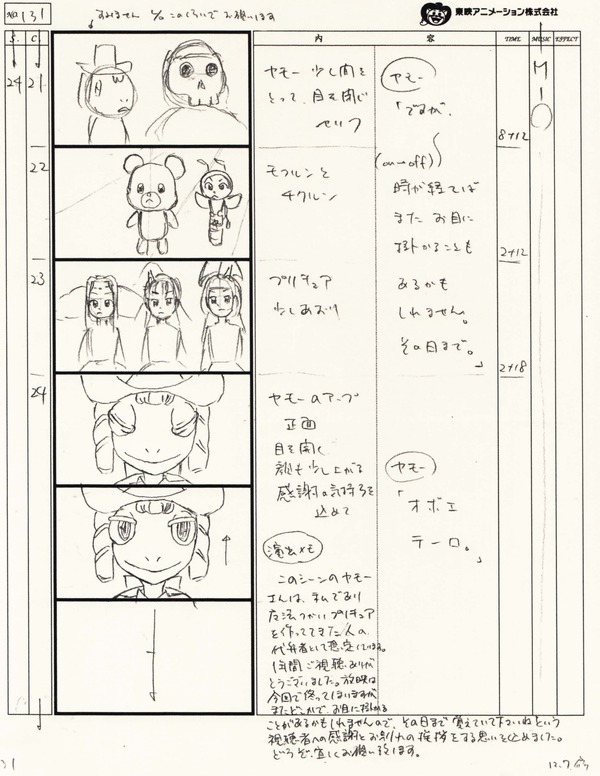 No 131
すみません 4/0 このくらいで お願いします
東映アニメーション株式会社
S. C 内 容 TIME MUSIC EFFECT
24 21
ヤモー 少し間を
とって、目を閉じ
セリフ
ヤモー
「ですが、
8+12
M
10
22
モフルンと
チクルン
(on→off)
時が経てば
また お目に
掛かることも
2+12
23
プリキュア
少しあおり
あるかも
しれません。
その日まで。」
2+18
24
ヤモーのアップ
正面
目を開く
顔も少し上がる
感謝の気持ちを
込めて
ヤモー
「オボエ
テーロ。」
演出メモ
このシーンのヤモー
さんは、私であり
魔法つかいプリキュア
を作ってきた人の
代弁者として想定しています。
1年間ご視聴ありが
とうございました。放映は
今回で終ってしまいますが
またどこかで、お目に掛かる
ことがあるかもしれませんので、その日まで覚えていて下さいねという
視聴者への感謝とお別れの挨拶をする思いを込めました。
どうぞ宜しくお願い致します。
31